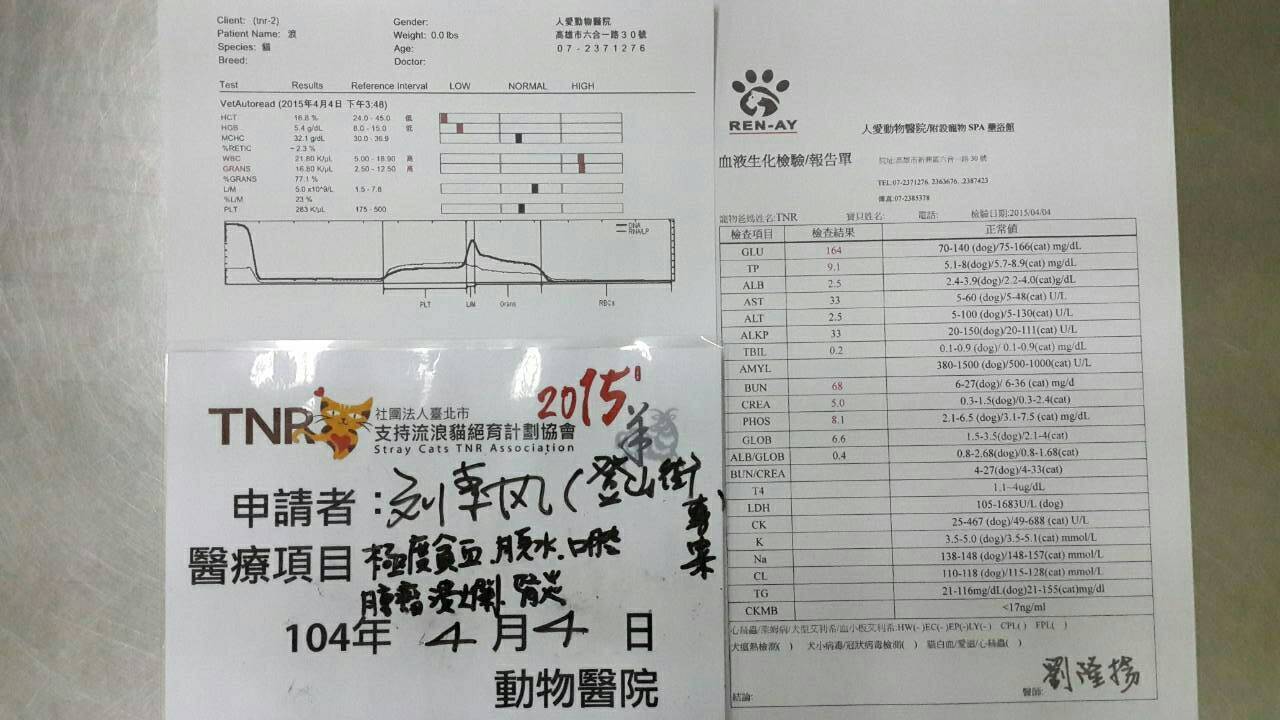 Client: (tnr-2)
Gender:
人愛動物醫院
Patient Name: 浪
Weight: 0.0 lbs
高雄市六合一路30號
Species: 貓
Age:
07-2371276
Breed:
Doctor:
Test Results Reference Interval LOW NORMAL HIGH
VetAutoread (2015年4月4日 下午3:48)
HCT 16.8 % 24.0 - 45.0 低
HGB 5.4 g/dL 8.0 - 15.0 低
MCHC 32.1 g/dL 30.0 - 36.9
%RETIC ~ 2.3 %
WBC 21.80 K/µL 5.00 - 18.90 高
GRANS 16.80 K/µL 2.50 - 12.50 高
%GRANS 77.1 %
L/M 5.0 x10^9/L 1.5 - 7.8
%L/M 23 %
PLT 263 K/µL 175 - 500
DNA
RNA/LP
PLT L/M Grans RBCs
TNR
社團法人臺北市
支持流浪貓絕育計劃協會
Stray Cats TNR Association
2015
申請者:刘聿风(登山街專案)
醫療項目 極度貧血.腹水.口腔
腫瘤潰爛.腎炎
104年 4月4日
動物醫院
REN-AY
人愛動物醫院/附設寵物 SPA 藥浴館
血液生化檢驗/報告單
院址:高雄市新興區六合一路 30 號
TEL:07-2371276. 2363676. .2387423
傳真:07-2385378
寵物爸媽姓名:TNR 寶貝姓名: 電話: 檢驗日期:2015/04/04
檢查項目 檢查結果 正常値
GLU 164 70-140 (dog)/75-166(cat) mg/dL
TP 9.1 5.1-8(dog)/5.7-8.9(cat) mg/dL
ALB 2.5 2.4-3.9(dog)/2.2-4.0(cat)g/dL
AST 33 5-60 (dog)/5-48(cat) U/L
ALT 2.5 5-100 (dog)/5-130(cat) U/L
ALKP 33 20-150(dog)/20-111(cat) U/L
TBIL 0.2 0.1-0.9 (dog)/ 0.1-0.9(cat) mg/dL
AMYL 380-1500 (dog)/500-1000(cat) U/L
BUN 68 6-27(dog)/ 6-36 (cat) mg/d
CREA 5.0 0.3-1.5(dog)/0.3-2.4(cat)
PHOS 8.1 2.1-6.5 (dog)/3.1-7.5 (cat) mg/dL
GLOB 6.6 1.5-3.5(dog)/2.1-4(cat)
ALB/GLOB 0.4 0.8-2.68(dog)/0.8-1.68(cat)
BUN/CREA 4-27(dog)/4-33(cat)
T4 1.1~4ug/dL
LDH 105-1683U/L (dog)
CK 25-467 (dog)/49-688 (cat) U/L
K 3.5-5.0 (dog)/3.5-5.1(cat) mmol/L
Na 138-148 (dog)/148-157(cat) mmol/L
CL 110-118 (dog)/115-128(cat) mmol/L
TG 21-116mg/dL(dog)21-155(cat)mg/dl
CKMB <17ng/ml
心絲蟲/萊姆病/犬型艾利希/血小板艾利希:HW(- )EC(- )EP(-)LY(- ) CPL( ) FPL( )
犬瘟熱檢測( ) 犬小病毒/冠狀病毒檢測( ) 貓白血/愛滋/心絲蟲( )
醫師: 劉隆揚
結論: